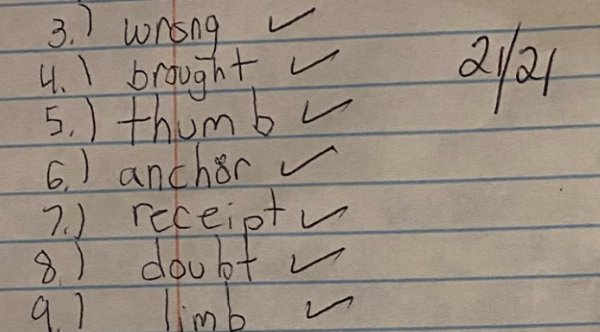 3.) wrong ✓
4.) brought ✓
21/21
5.) thumb ✓
6.) anchor ✓
7.) receipt ✓
8.) doubt ✓
9.) limb ✓